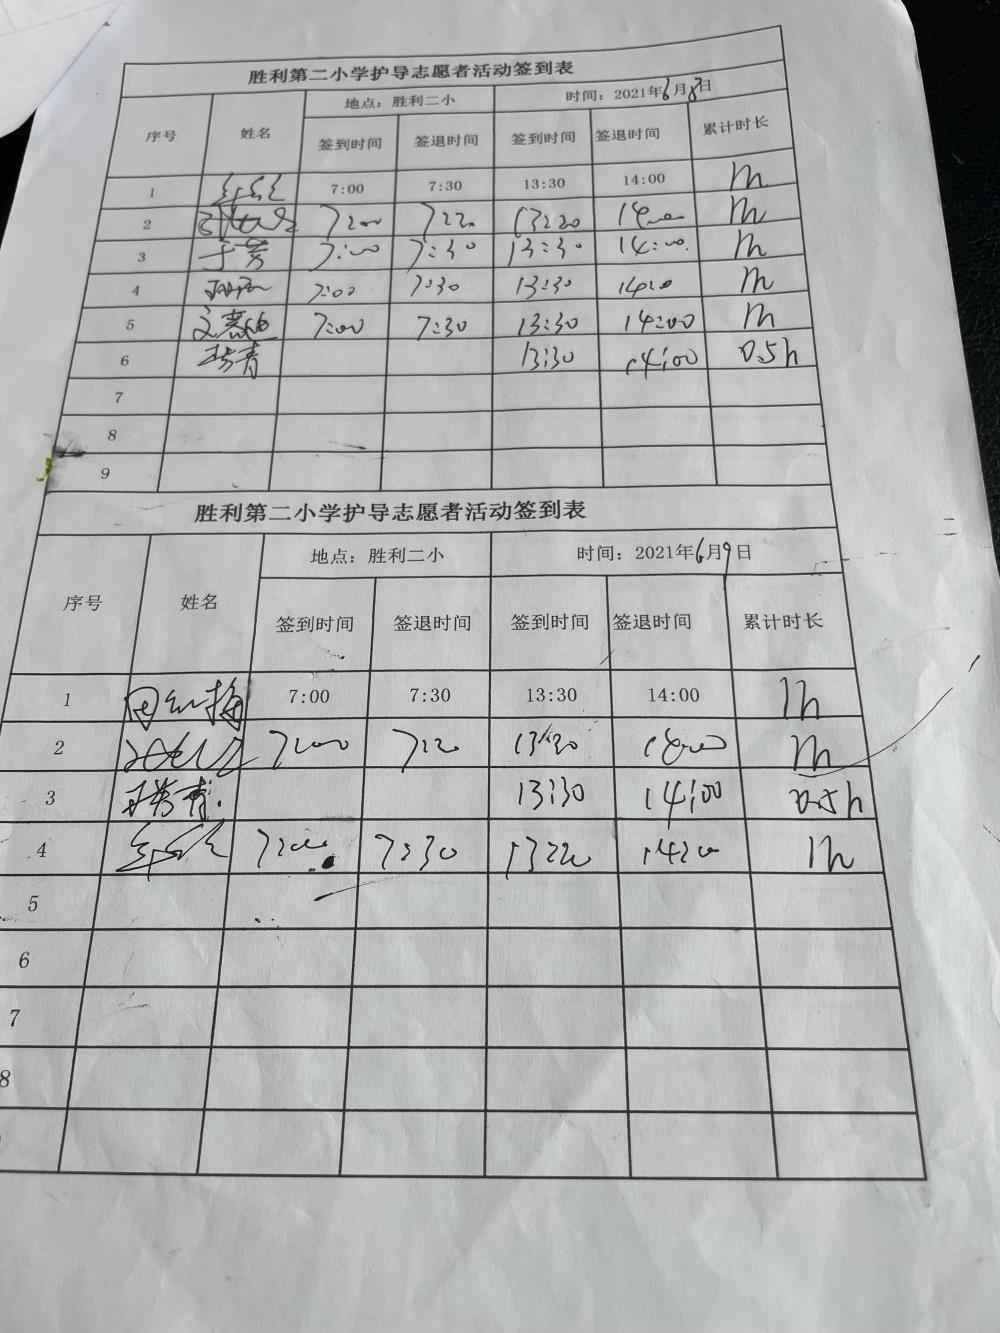 胜利第二小学护导志愿者活动签到表
序号 姓名 地点：胜利二小 时间：2021年6月8日
签到时间 签退时间 签到时间 签退时间 累计时长
1 7:00 7:30 13:30 14:00 1h
2 7:00 7:30 13:30 14:00 1h
3 于芳 7:00 7:30 13:30 14:00 1h
4 7:00 7:30 13:30 14:00 1h
5 7:00 7:30 13:30 14:00 1h
6 13:30 14:00 0.5h
7
8
9
胜利第二小学护导志愿者活动签到表
序号 姓名 地点：胜利二小 时间：2021年6月9日
签到时间 签退时间 签到时间 签退时间 累计时长
1 7:00 7:30 13:30 14:00 1h
2 7:00 7:30 13:30 14:00 1h
3 13:30 14:00 0.5h
4 7:00 7:30 13:30 14:00 1h
5
6
7
8